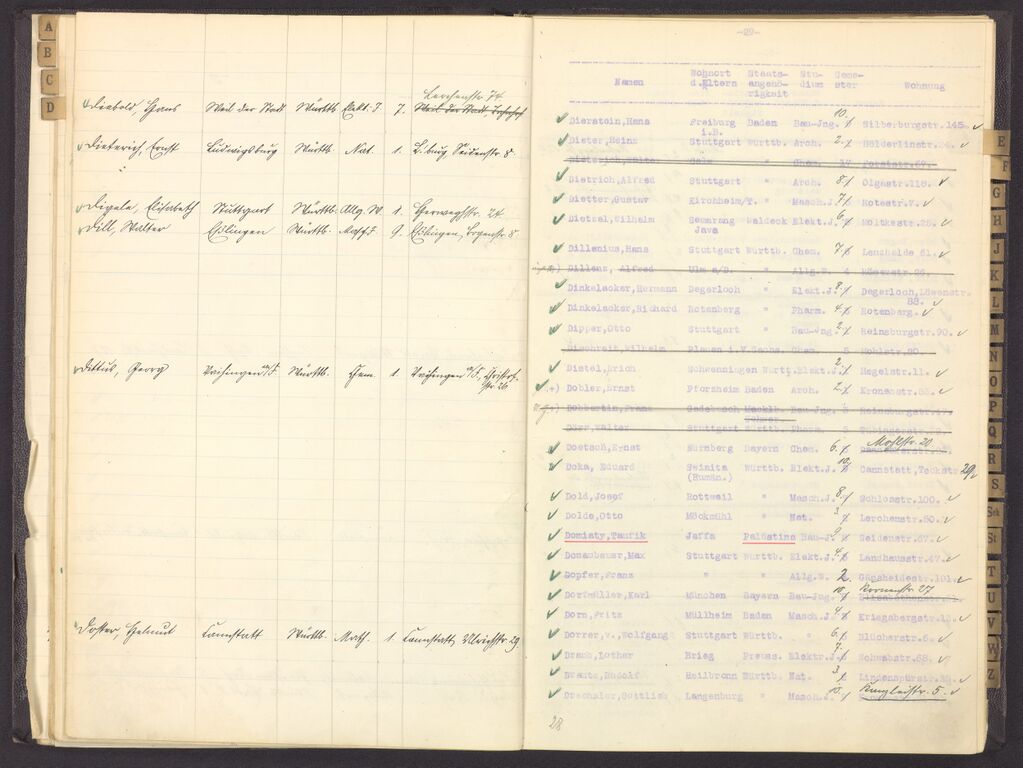 A
B
C
D
Lerchenstr. 74
Diebold, Hans Weil der Stadt Württb. Elekt. J 7. Weil der Stadt,
Dieterich, Ernst Ludwigsburg Württb. Nat. 1. L.burg Seidenstr. 8
Digele, Elisabeth Stuttgart Württb. Allg. W. 1. Herweghstr. 24
Dill, Walter Eßlingen Württb. 9. Eßlingen,
Dittus, Georg Vaihingen a/F. Württb. Chem. 1. Vaihingen a/F.,
str. 26
Doster, Helmut Cannstatt Württb. Math. 1 Cannstatt, Ulrichstr. 29
-29-
Namen Wohnort d.Eltern Staats-angehö-rigkeit Stu-dium Seme-ster Wohnung
Bierstein, Hans Freiburg i.B. Baden Bau-Jng. 10. Silberburgstr. 145.
Dieter, Heinz Stuttgart Württb. Arch. 2. Hölderlinstr.
Chem. Forststr. 67.
Dietrich, Alfred Stuttgart " Arch. 8. Olgastr. 110.
Dietter, Gustav Kirchheim/T. " Masch.J. 7. Rotestr. 7.
Dietzel, Wilhelm Semarang Java Waldeck Elekt.J. 6 Moltkestr.
Dillenius, Hans Stuttgart Württb. Chem. 7 Lenzhalde 61.
Dillenz, Alfred Ulm a/D. " Allg.W. 4
Dinkelacker, Hermann Degerloch " Elekt.J. 8. Degerloch, Löwenstr.
88.
Dinkelacker, Richard Rotenberg " Pharm. 4. Rotenberg.
Dipper, Otto Stuttgart " Bau-Jng. 2 Reinsburgstr. 90.
Wilhelm Plauen i.V. Sachs. Chem. 5
Distel, Erich Schwenningen Württ. Elekt.J. 2. Hegelstr. 11.
Dobler, Ernst Pforzheim Baden Arch. 2. Kronenstr.
Dobbertin, Franz Gadebusch Mecklb. Bau-Jng.
Dörr, Walter Stuttgart Württb. Pharm.
Doetsch, Ernst Nürnberg Bayern Chem. 6. Mohlstr. 20
Doka, Eduard Svinita (Rumän.) Württb. Elekt.J. 10. Cannstatt, Teckstr. 29
Dold, Josef Rottweil " Masch.J. 8. Schloßstr. 100.
Dolde, Otto Möckmühl " Nat. 3 Lerchenstr. 50.
Domiaty, Taufik Jaffa Palästina Bau-J. Seidenstr. 67.
Donaubauer, Max Stuttgart Württb. Elekt.J. 4. Landhausstr. 47.
Dopfer, Franz " " Allg.W. 2. Gänsheidestr. 101.
Dorfmüller, Karl München Bayern Bau-Jng. 10. Kornerstr. 27
Dorn, Fritz Müllheim Baden Masch.J. 4 Kriegsbergstr.
Dorrer, v., Wolfgang Stuttgart Württb. " 6. Blücherstr. 6.
Draub, Lothar Brieg Preuss. Elektr.J. 7. Schwabstr. 68.
Rudolf Heilbronn Württb. Nat. 3 Lindenspürstr.
Drechsler, Gottlieb Langenburg " Masch. 10. Kanzleistr. 5.
28
E
F
G
H
J
K
L
M
N
O
P
Q
R
S
Sch
St
T
U
V
W
Z